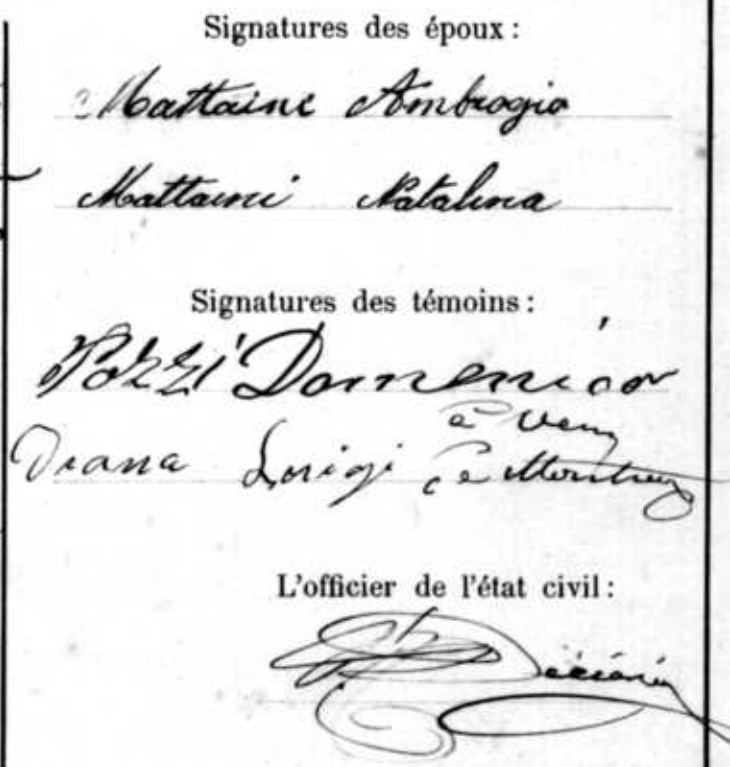 Signatures des époux :
Mattaine Ambrogio
Mattaini Natalina
Signatures des témoins :
Pozzi Domenico
à Vevey
Diana Luigi à Montreux
L'officier de l'état civil :